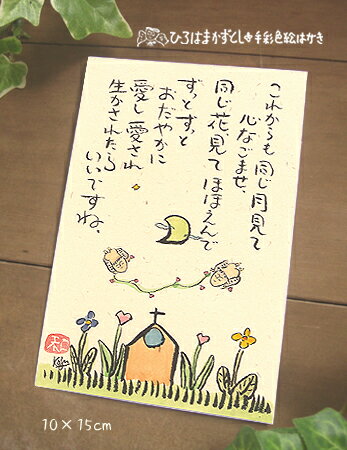 ひろはまかずとし 手彩色絵はがき
これからも同じ月見て
心なごませ、
同じ花、見てほほえんで
ずっとずっと
おだやかに
愛し愛され
生かされたら
いいですね。
10×15cm